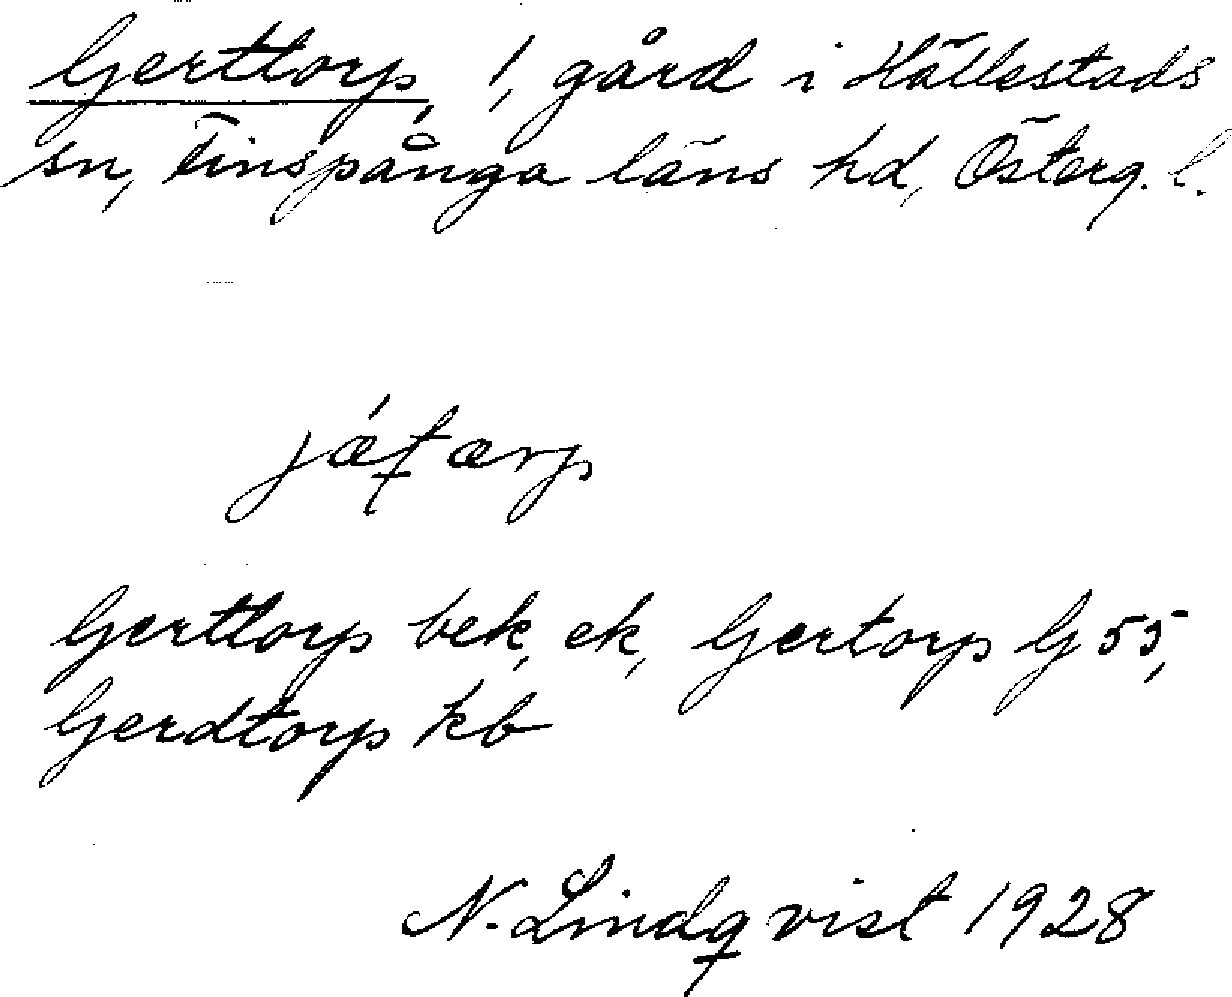 Gerttorp, 1, gård i Hällestads
sn, Finspånga läns hd, Österg. l.
Gerttorp bek, ek, Gertorp G 55,
Gerdtorp kb
N. Lindqvist 1928